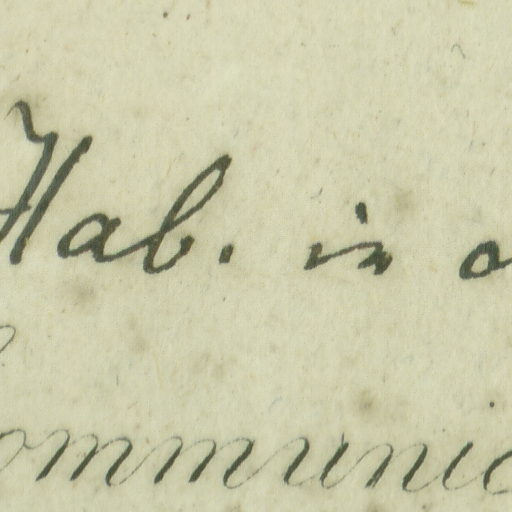 Hab. in
ommunic